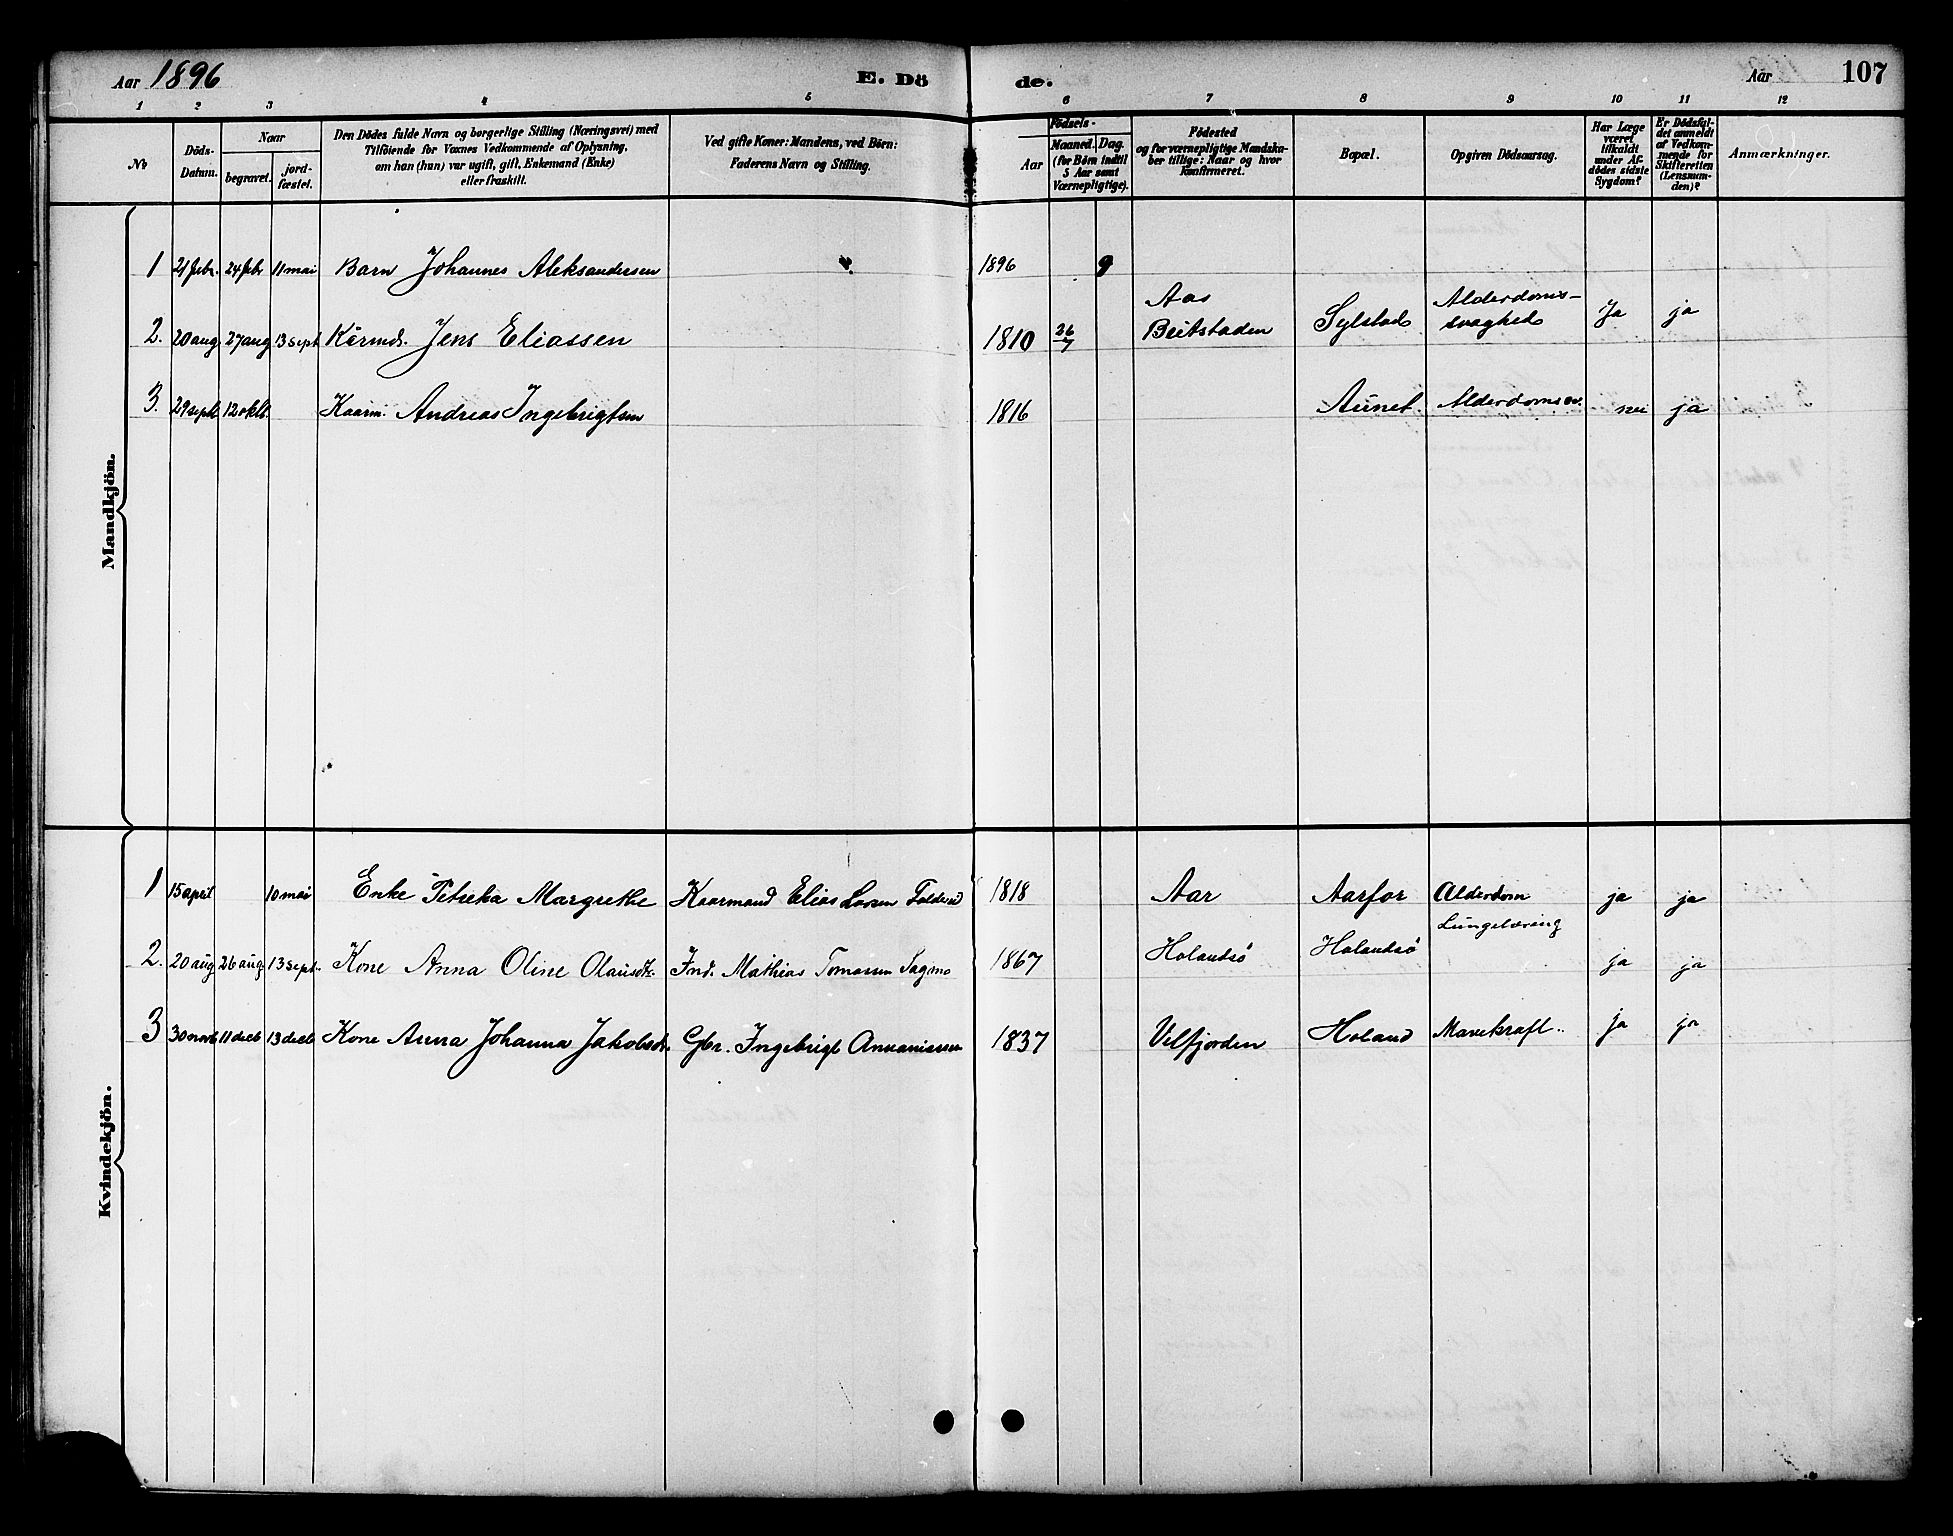 Aar 1896 E. Dö de. Aar 107
1 2 3 4 5 6 7 8 9 10 11 12
№
Döds-
Datum.
Naar
begravet.
jord-
fæstet.
Den Dödes fulde Navn og borgerlige Stilling (Næringsvei) med
Tilföiende for Voxnes Vedkommende af Oplysning,
om han (hun) var ugift, gift, Enkemand (Enke)
eller fraskilt.
Ved gifte Koner: Mandens, ved Börn:
Faderens Navn og Stilling.
Födsels-
Aar
Maaned.
Dag.
(for Börn indtil
5 Aar samt
Værnepligtige).
Födested
og for værnepligtige Mandska-
ber tillige: Naar og hvor
konfirmeret.
Bopæl.
Opgiven Dödsaarsag.
Har Læge
været
tilkaldt
under Af-
dödes sidste
Sygdom?
Er Dödsfal-
det anmeldt
af Vedkom-
mende for
Skifteretten
(Lensman-
den)?
Anmærkninger.
Mandkjön.
1 21 febr. 24 febr 11 mai Barn Johannes Aleksandersen 1896 9
2. 20 aug 27 aug 13 sept Kårmd. Jens Eliassen 1810 26/7 Aas Beitstaden Sylstad Alderdoms-svaghed Ja ja
3. 29 sept 12 okt. Kaarm. Andreas Ingebrigtsen 1816 Aunet Alderdomssv. nei ja
Kvindekjön.
1 15 april 10 mai Enke Petrika Margrethe Kaarmand Elias Larsen 1818 Aar Aarfor Alderdom ja ja
2. 20 aug 26 aug 13 sept. Kone Anna Oline Olausdtr. Ind. Mathias Tomassen Sagmo 1867 Holandsö Holandsö Lungetæring ja ja
3 30 novb 11 decb 13 decb Kone Anna Johanna Jakobsdt. Gbr. Ingebrigt Annaniassen 1837 Velfjorden Holand Mavekræft.. ja ja